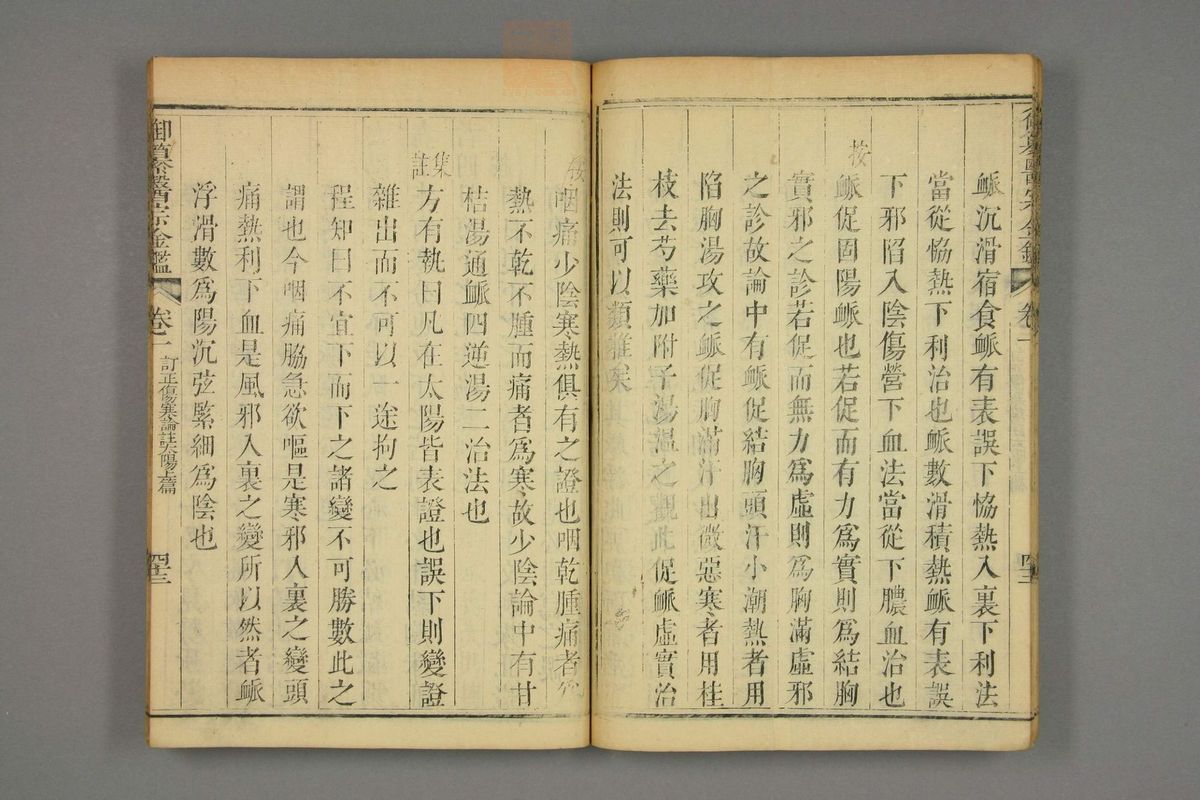 脈沉滑宿食脈有表誤下恊熱入裏下利法
當從恊熱下利治也脈數滑積熱脈有表誤
下邪陷入陰傷營下血法當從下膿血治也
按
脈促固陽脈也若促而有力為實則為結胸
實邪之診若促而無力為虛則為胸滿虛邪
之診故論中有脈促結胸頭汗小潮熱者用
陷胸湯攻之脈促胸滿汗出微惡寒者用桂
枝去芍藥加附子湯温之觀此促脈虛實治
法則可以類推矣
按
咽痛少陰寒熱俱有之證也咽乾腫痛者為
熱不乾不腫而痛者為寒故少陰論中有甘
桔湯通脈四逆湯二治法也
集註
方有執曰凡在太陽皆表證也誤下則變證
雜出而不可以一途拘之
程知曰不宜下而下之諸變不可勝數此之
謂也今咽痛脇急欲嘔是寒邪入裏之變頭
痛熱利下血是風邪入裏之變所以然者脈
浮滑數為陽沉弦緊細為陰也
御纂醫宗金鑑 卷一 訂正傷寒論註太陽上篇 四十三